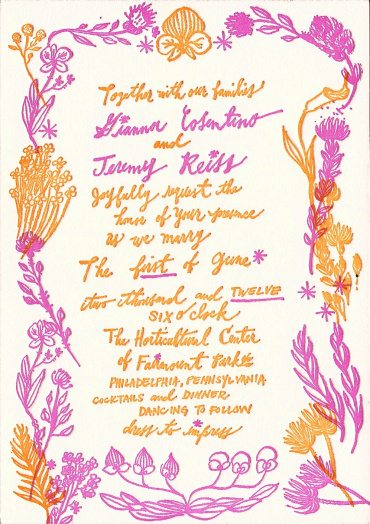 Together with our families
Gianna Cosentino
and
Jeremy Reiss
Joyfully request the
honor of your presence
as we marry
The first of June
two thousand and TWELVE
SIX o'clock
The Horticultural Center
of Fairmount Park
PHILADELPHIA, PENNSYLVANIA
COCKTAILS and DINNER
DANCING TO FOLLOW
dress to impress